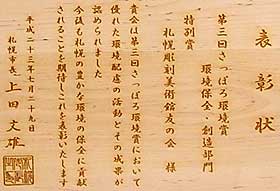 表彰状
第三回さっぽろ環境賞
環境保全・創造部門
特別賞
札幌彫刻美術館友の会 様
貴会は第三回さっぽろ環境賞において
優れた環境配慮の活動とその成果が
認められました
今後も札幌の豊かな環境の保全に貢献
されることを期待しこれを表彰いたします
平成二十三年七月二十九日
札幌市長 上田文雄